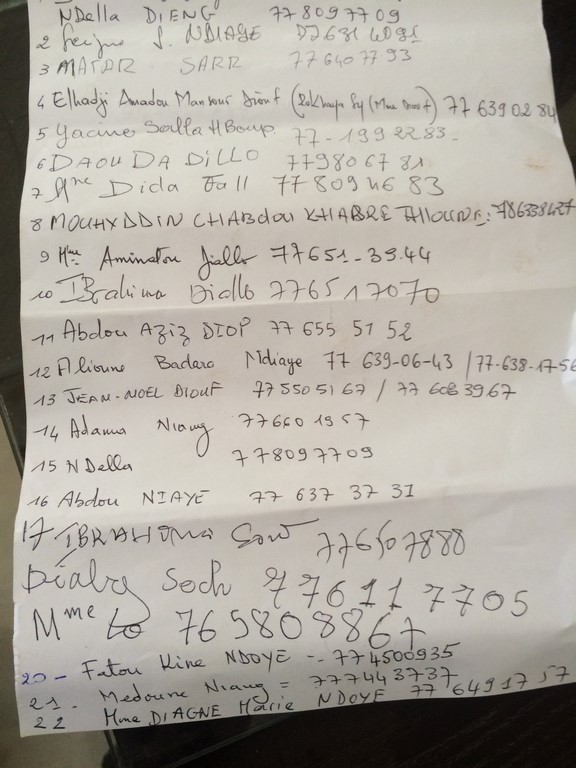 NDella DIENG 77 809 77 09
2 Serigne S. NDIAYE 77681 4091
3 MATAR SARR 77 640 77 93
4 Elhadji Amadou Mansour Diouf (Rokhaya Sy (Mme Diouf) 77 639 02 84
5 Yacine Salla MBoup 77-199 22 83-
6 DAOUDA DiLLO 77980 67 81
7 Mme Dida Fall 77 809 46 83
8 MOUHYDDIN CHABdou KHABRE : 786338427
9 Mme Aminatou Diallo 77651-39.44
10 IBrahima Diallo 776517070
11 Abdou Aziz DIOP 77 655 51 52
12 Alioune Badara Ndiaye 77 639-06-43 / 77-638-17-56
13 JEAN-NOEL DIOUF 77 550 51 67 / 77 608 39 67
14 Adama Niang 77660 19 57
15 NDella 778097709
16 Abdou NIAYE 77 637 37 31
17 IBRAHIMA Sow 776507888
Dialry Seck 776117705
Mme Lo 765808867
20 - Fatou Kine NDOYE -- 774500935
21 - Medoune Niang = 777443737
22 Mme DIAGNE Marie NDOYE 77 649 17 57